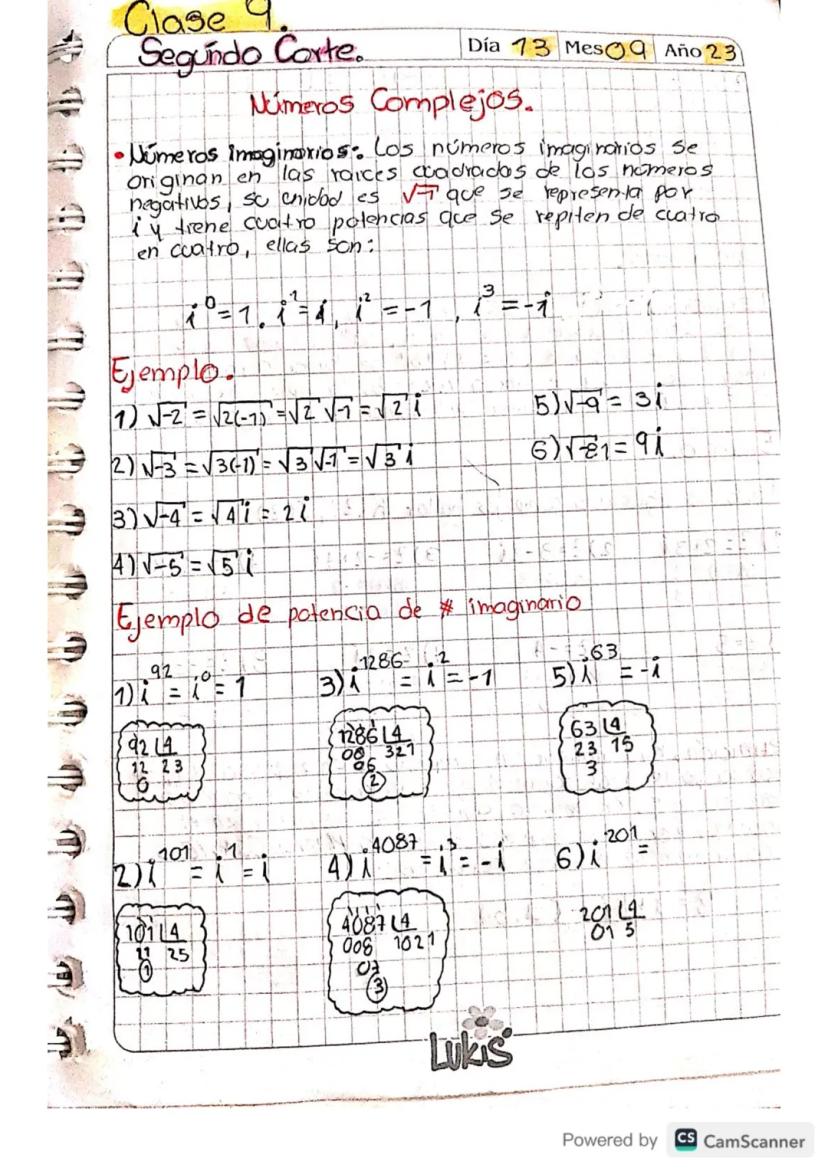 Clase 9.
Segúndo Corte.
Día 13 Mes 09 Año 23
Números Complejos.
• Números imaginarios: Los números imaginarios se
originan en las raíces cuadradas de los números
negativos, su unidad es √-1 que se representa por
i y tiene cuatro potencias que se repiten de cuatro
en cuatro, ellas son:
i⁰=1. i¹=i, i²=-1, i³=-i
Ejemplo.
1) √-2 = √2(-1) = √2 √-1 = √2 i
2) √-3 = √3(-1) = √3 √-1 = √3 i
3) √-4 = √4 i = 2i
4) √-5 = √5 i
5) √-9 = 3i
6) √-81 = 9i
Ejemplo de potencia de # imaginario
1) i⁹² = i⁰ = 1
92 ⌊4
12 23
0
3) i¹²⁸⁶ = i² = -1
1286 ⌊4
08 321
06
2
5) i⁶³ = -i
63 ⌊4
23 15
3
2) i¹⁰¹ = i¹ = i
101 ⌊4
21 25
1
4) i⁴⁰⁸⁷ = i³ = -i
4087 ⌊4
008 1021
07
3
6) i²⁰¹ =
201 ⌊4
01 5
Lukis
Powered by CS CamScanner